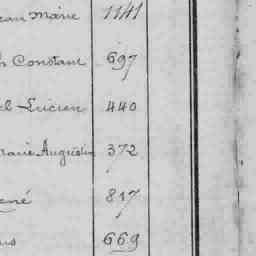 ean Marie 1141
h Constant 697
el Lucien 440
rarie Augustin 372
ené 817
us 669